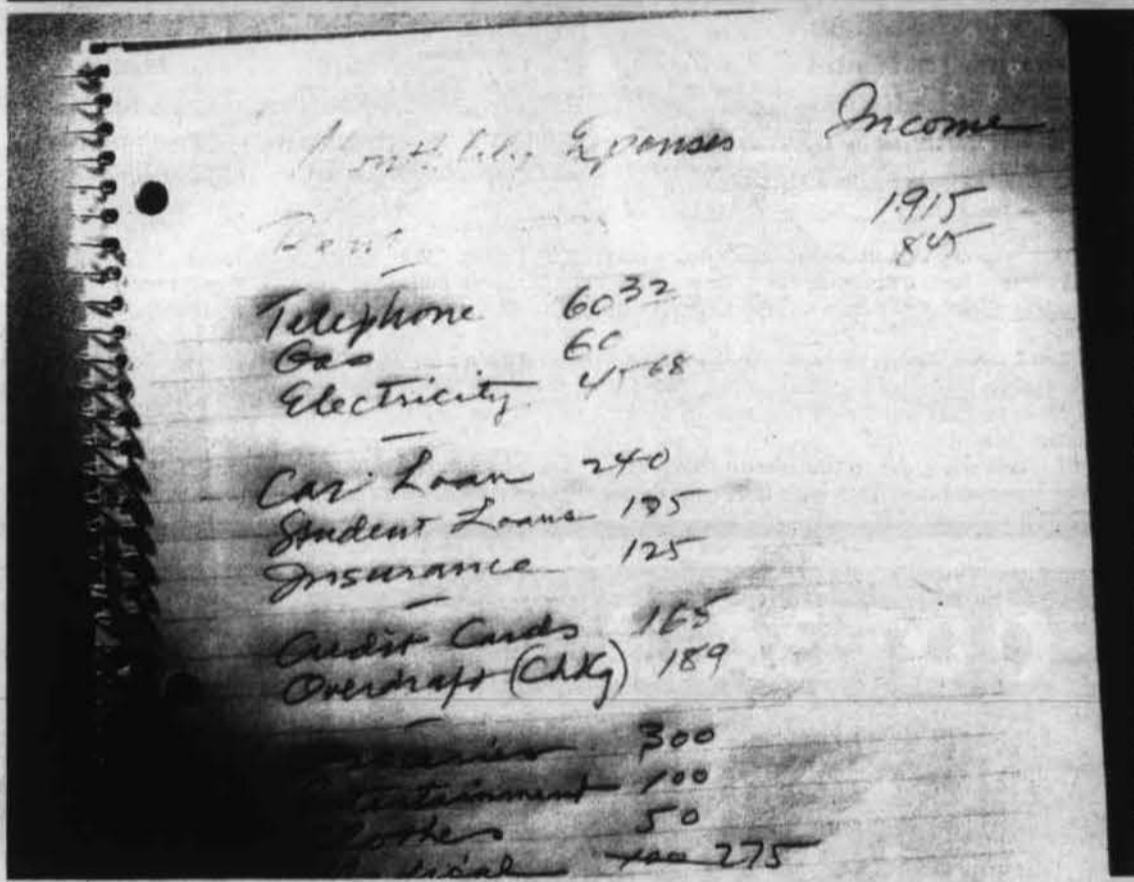 Monthly Expenses Income
1915
Rent 845
Telephone 60 32
Gas 60
Electricity 45 68
Car Loan 240
Student Loans 195
Insurance 125
Credit Cards 165
Overdraft (Chkg) 189
Groceries 300
Entertainment 100
Clothes 50
Medical 275